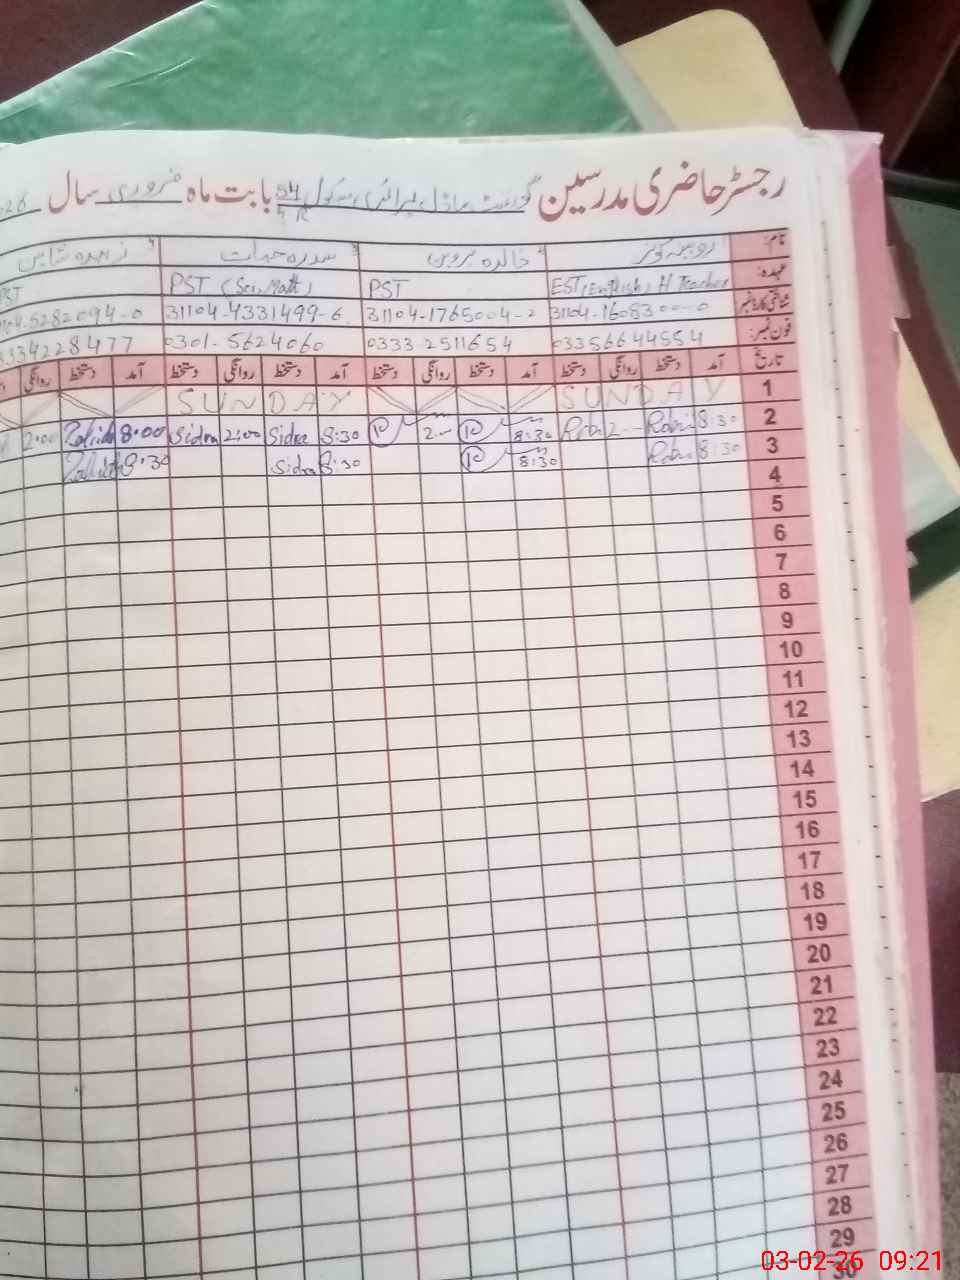 رجسٹر حاضری مدرسین گورنمنٹ ماڈل پرائمری سکول 54 بابت ماہ فروری سال
نام: روبینہ کوثر خالدہ پروین سدرہ زاہدہ شاہین
عہدہ: EST(English) H Teacher PST PST (Sci, Math) PST
شناختی کارڈ نمبر 31104-1765004-2 31104-4331499-6 5282094-0
فون نمبر: 03356644554 0333 2511654 0301-5624060 0333 4228477
تاریخ آمد دستخط روانگی دستخط آمد دستخط روانگی دستخط آمد دستخط روانگی دستخط آمد دستخط روانگی
1 SUNDAY SUNDAY
2 8:30 2 8:30 2 8:30 Sidra 2:00 Sidra 8:00 Zahida 2:00
3 8:30 8:30 8:30 Sidra 8:30 Zahida
4
5
6
7
8
9
10
11
12
13
14
15
16
17
18
19
20
21
22
23
24
25
26
27
28
29
30
03-02-26 09:21